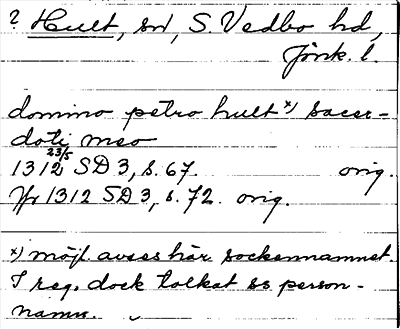 ? Hult, sn, S. Vedbo hd,
Jönk. l.
domino petro hult x) sacer-
doti meo
1312 23/5 SD 3, s. 67. orig.
Jfr 1312 SD 3, s. 72. orig.
x) möjl. avses här sockennamnet.
I reg. dock tolkat ss person-
namn.